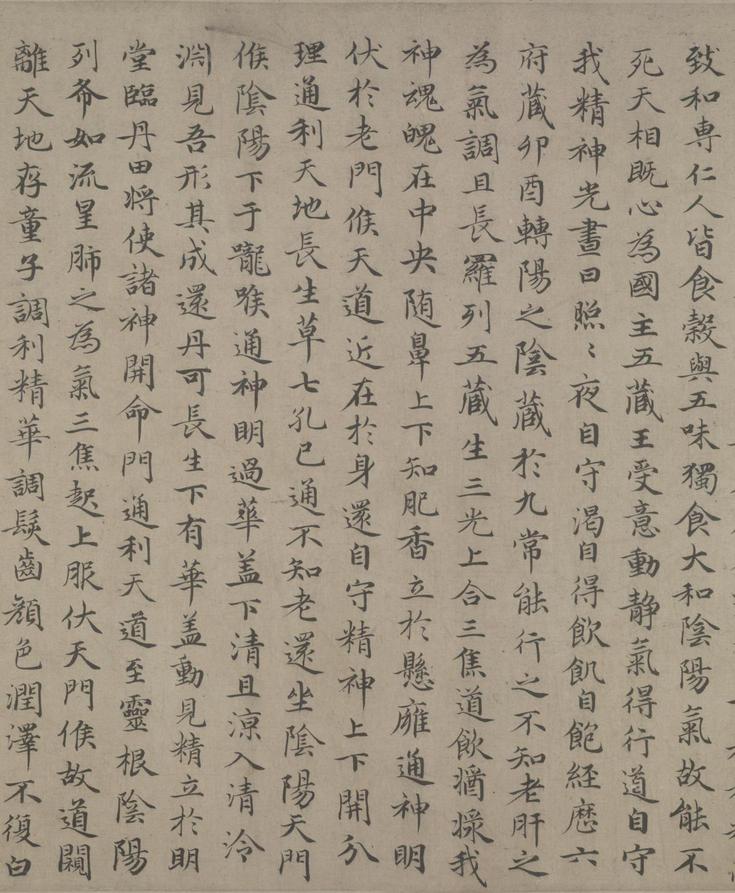 致和専仁人皆食穀與五味獨食大和陰陽氣故能不
死天相既心為國主五藏王受意動静氣得行道自守
我精神光晝日照〻夜自守渴自得飲飢自飽經歷六
府藏卯酉轉陽之陰藏於九常能行之不知老肝之
為氣調且長羅列五藏生三光上合三焦道飲猶㵎我
神魂魄在中央随鼻上下知肥香立於懸廱通神明
伏於老門候天道近在於身還自守精神上下開分
理通利天地長生草七孔已通不知老還坐陰陽天門
候陰陽下于嚨喉通神明過華盖下清且涼入清泠
淵見吾形其成還丹可長生下有華盖動見精立於明
堂臨丹田将使諸神開命門通利天道至靈根陰陽
列布如流星肺之為氣三焦起上服伏天門候故道闚
離天地存童子調利精華調髮齒顏色潤澤不復白